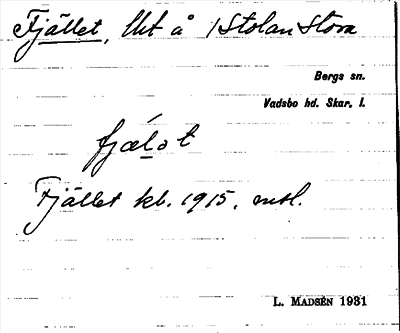 Fjället, Utt å /Stolan Stora
Bergs sn.
Vadsbo hd. Skar. l.
fjælət
Fjället kb. 1915. mtl.
L. MADSÉN 1931